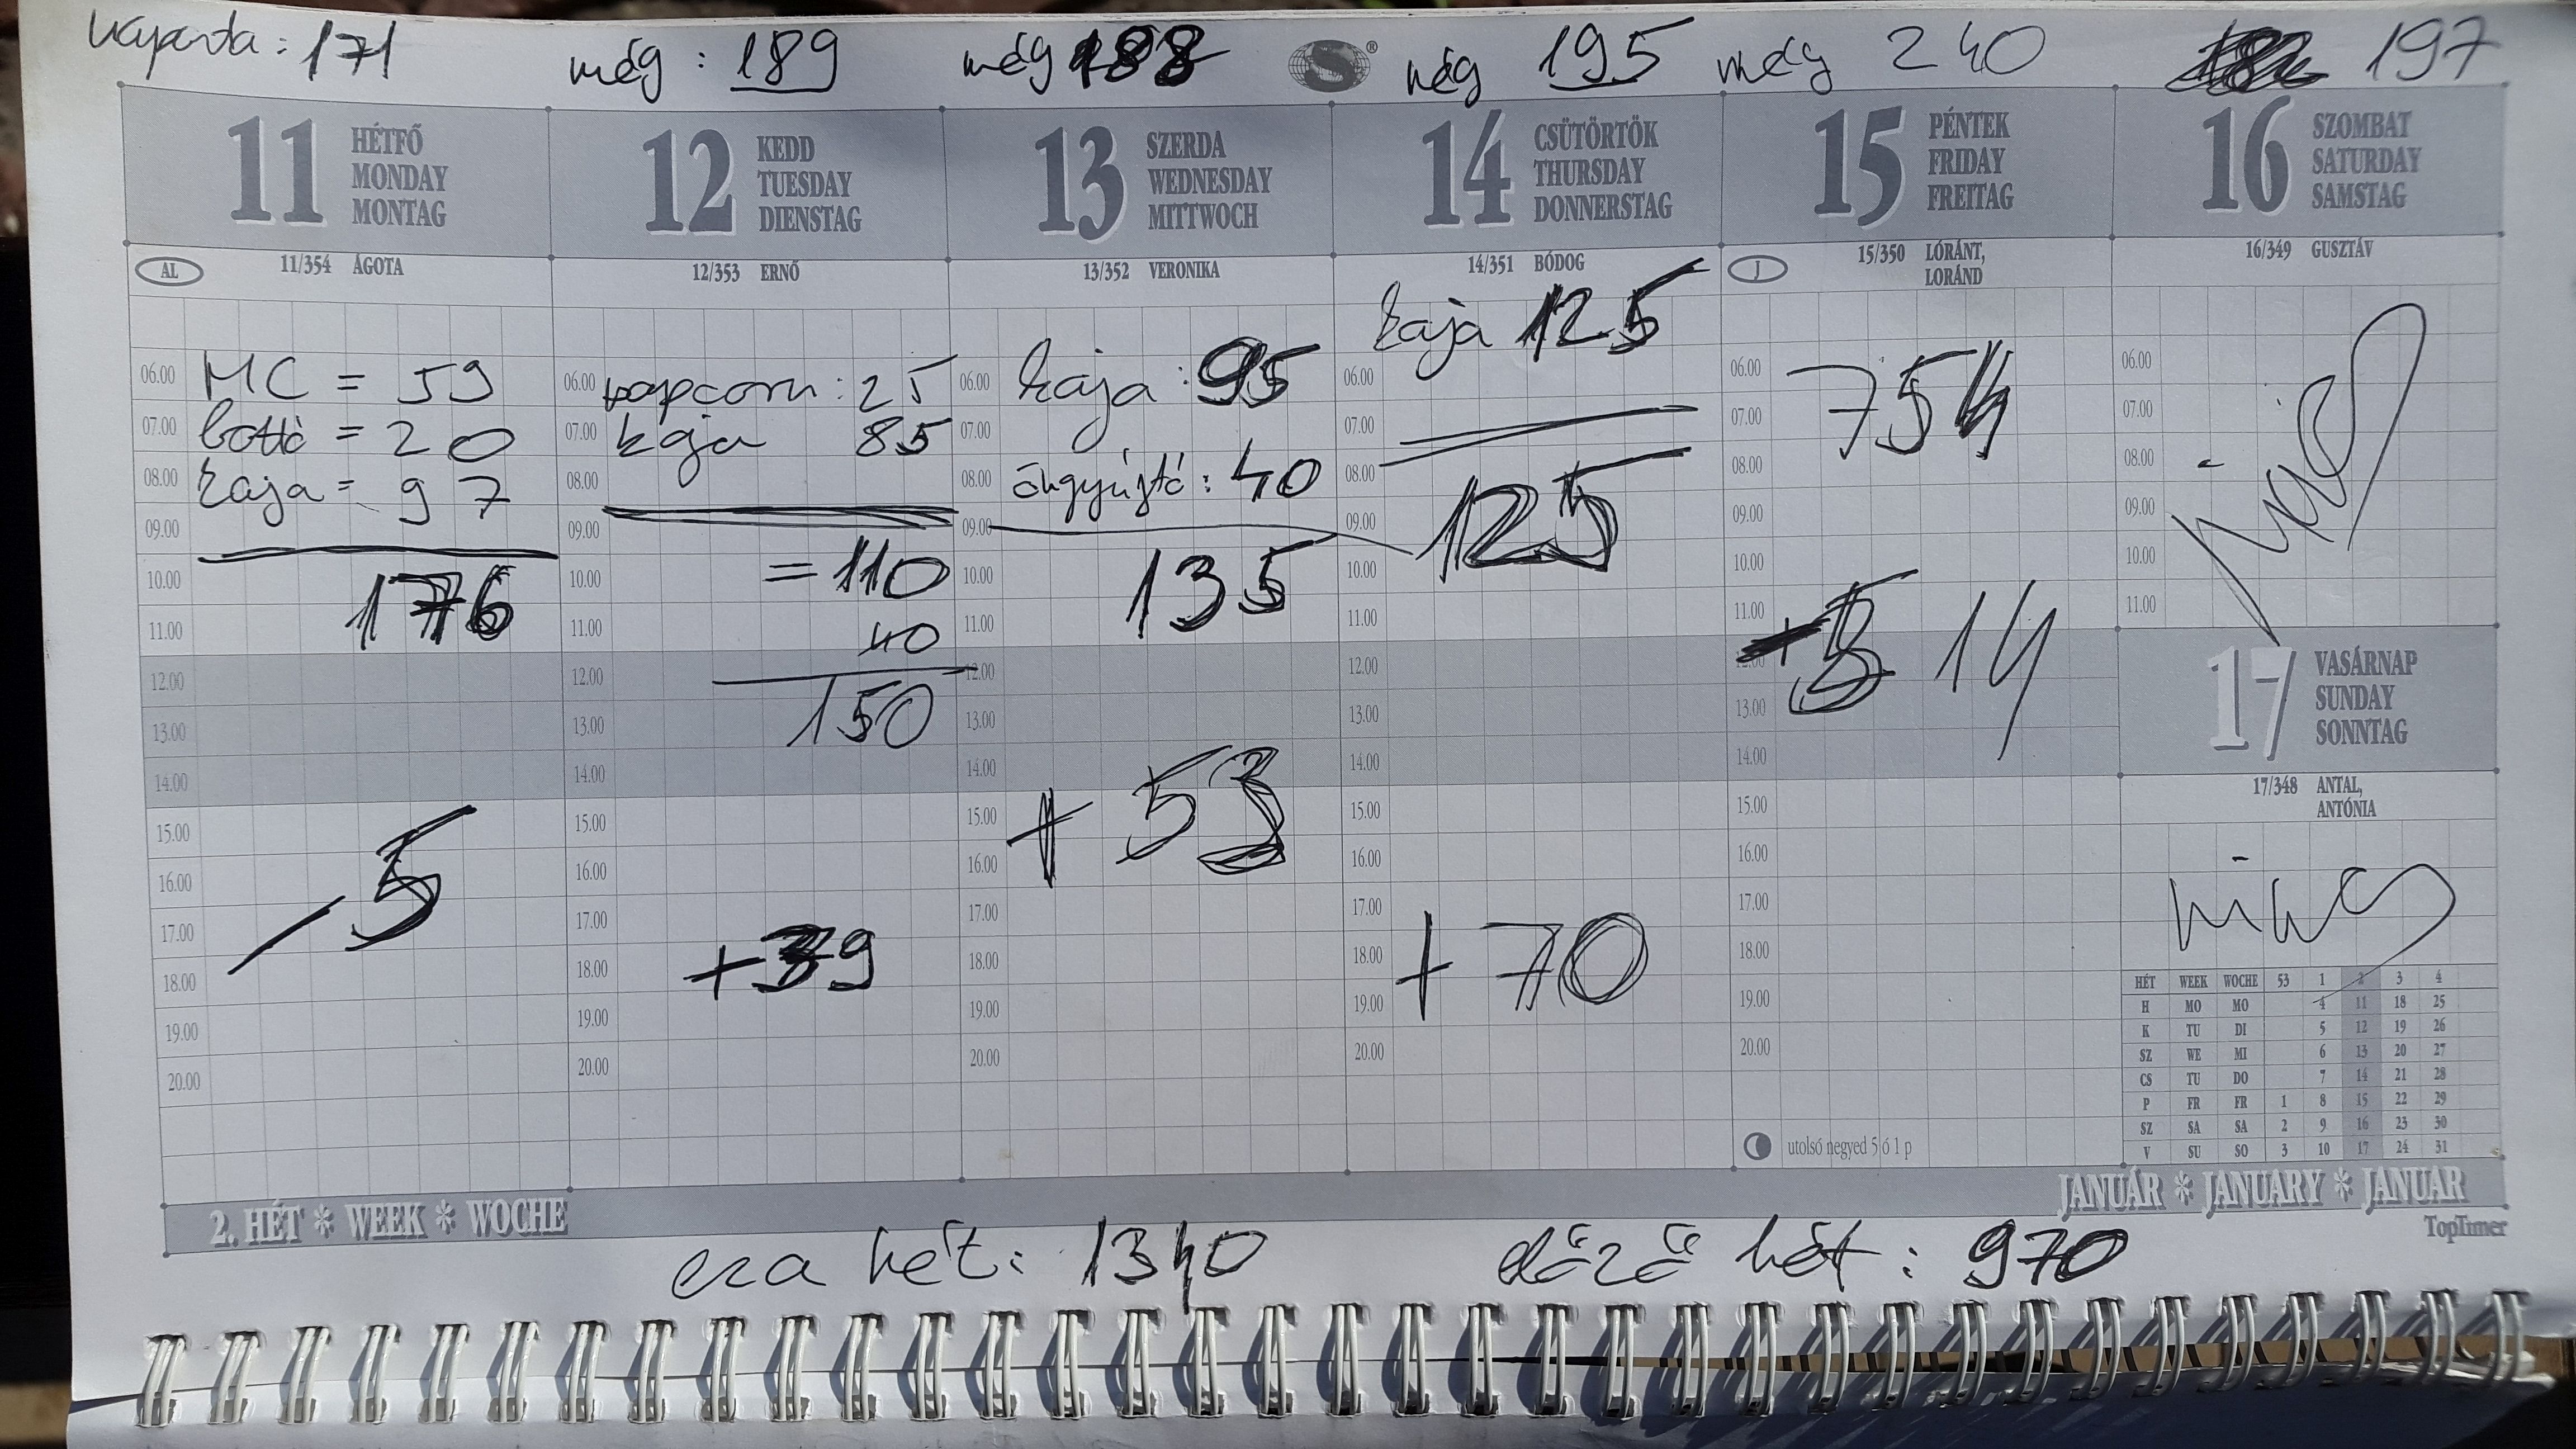 naponta : 171
még : 189
még 188
még 195
még 240
197
11
HÉTFŐ
MONDAY
MONTAG
11/354 ÁGOTA
AL
06.00 MC = 59
07.00 lottó = 20
08.00 kaja = 97
09.00
10.00 176
11.00
12.00
13.00
14.00
15.00
16.00 - 5
17.00
18.00
19.00
20.00
12
KEDD
TUESDAY
DIENSTAG
12/353 ERNŐ
06.00 popcorn : 25
07.00 kaja 85
08.00
09.00
10.00 = 110
11.00 40
12.00
13.00 150
14.00
15.00
16.00
17.00
18.00 +39
19.00
20.00
13
SZERDA
WEDNESDAY
MITTWOCH
13/352 VERONIKA
06.00 kaja : 95
07.00
08.00 öngyújtó : 40
09.00
10.00 135
11.00
12.00
13.00
14.00
15.00 + 53
16.00
17.00
18.00
19.00
20.00
14
CSÜTÖRTÖK
THURSDAY
DONNERSTAG
14/351 BÓDOG
kaja 125
06.00
07.00
08.00
09.00 125
10.00
11.00
12.00
13.00
14.00
15.00
16.00
17.00
18.00 + 70
19.00
20.00
15
PÉNTEK
FRIDAY
FREITAG
15/350 LÓRÁNT,
LORÁND
J
06.00
07.00 754
08.00
09.00
10.00
11.00
12.00 + 514
13.00
14.00
15.00
16.00
17.00
18.00
19.00
20.00
utolsó negyed 5 ó 1 p
16
SZOMBAT
SATURDAY
SAMSTAG
16/349 GUSZTÁV
06.00
07.00
08.00
09.00
10.00
11.00
17
VASÁRNAP
SUNDAY
SONNTAG
17/348 ANTAL,
ANTÓNIA
nincs
HÉT WEEK WOCHE 53 1 2 3 4
H MO MO 4 11 18 25
K TU DI 5 12 19 26
SZ WE MI 6 13 20 27
CS TU DO 7 14 21 28
P FR FR 1 8 15 22 29
SZ SA SA 2 9 16 23 30
V SU SO 3 10 17 24 31
2. HÉT * WEEK * WOCHE
JANUÁR * JANUARY * JANUAR
TopTimer
eza hét : 1340
előző hét : 970